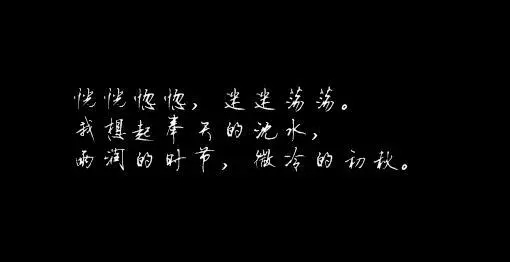 恍恍惚惚，迷迷荡荡。
我想起奉天的沈水，
雨润的时节，微冷的初秋。